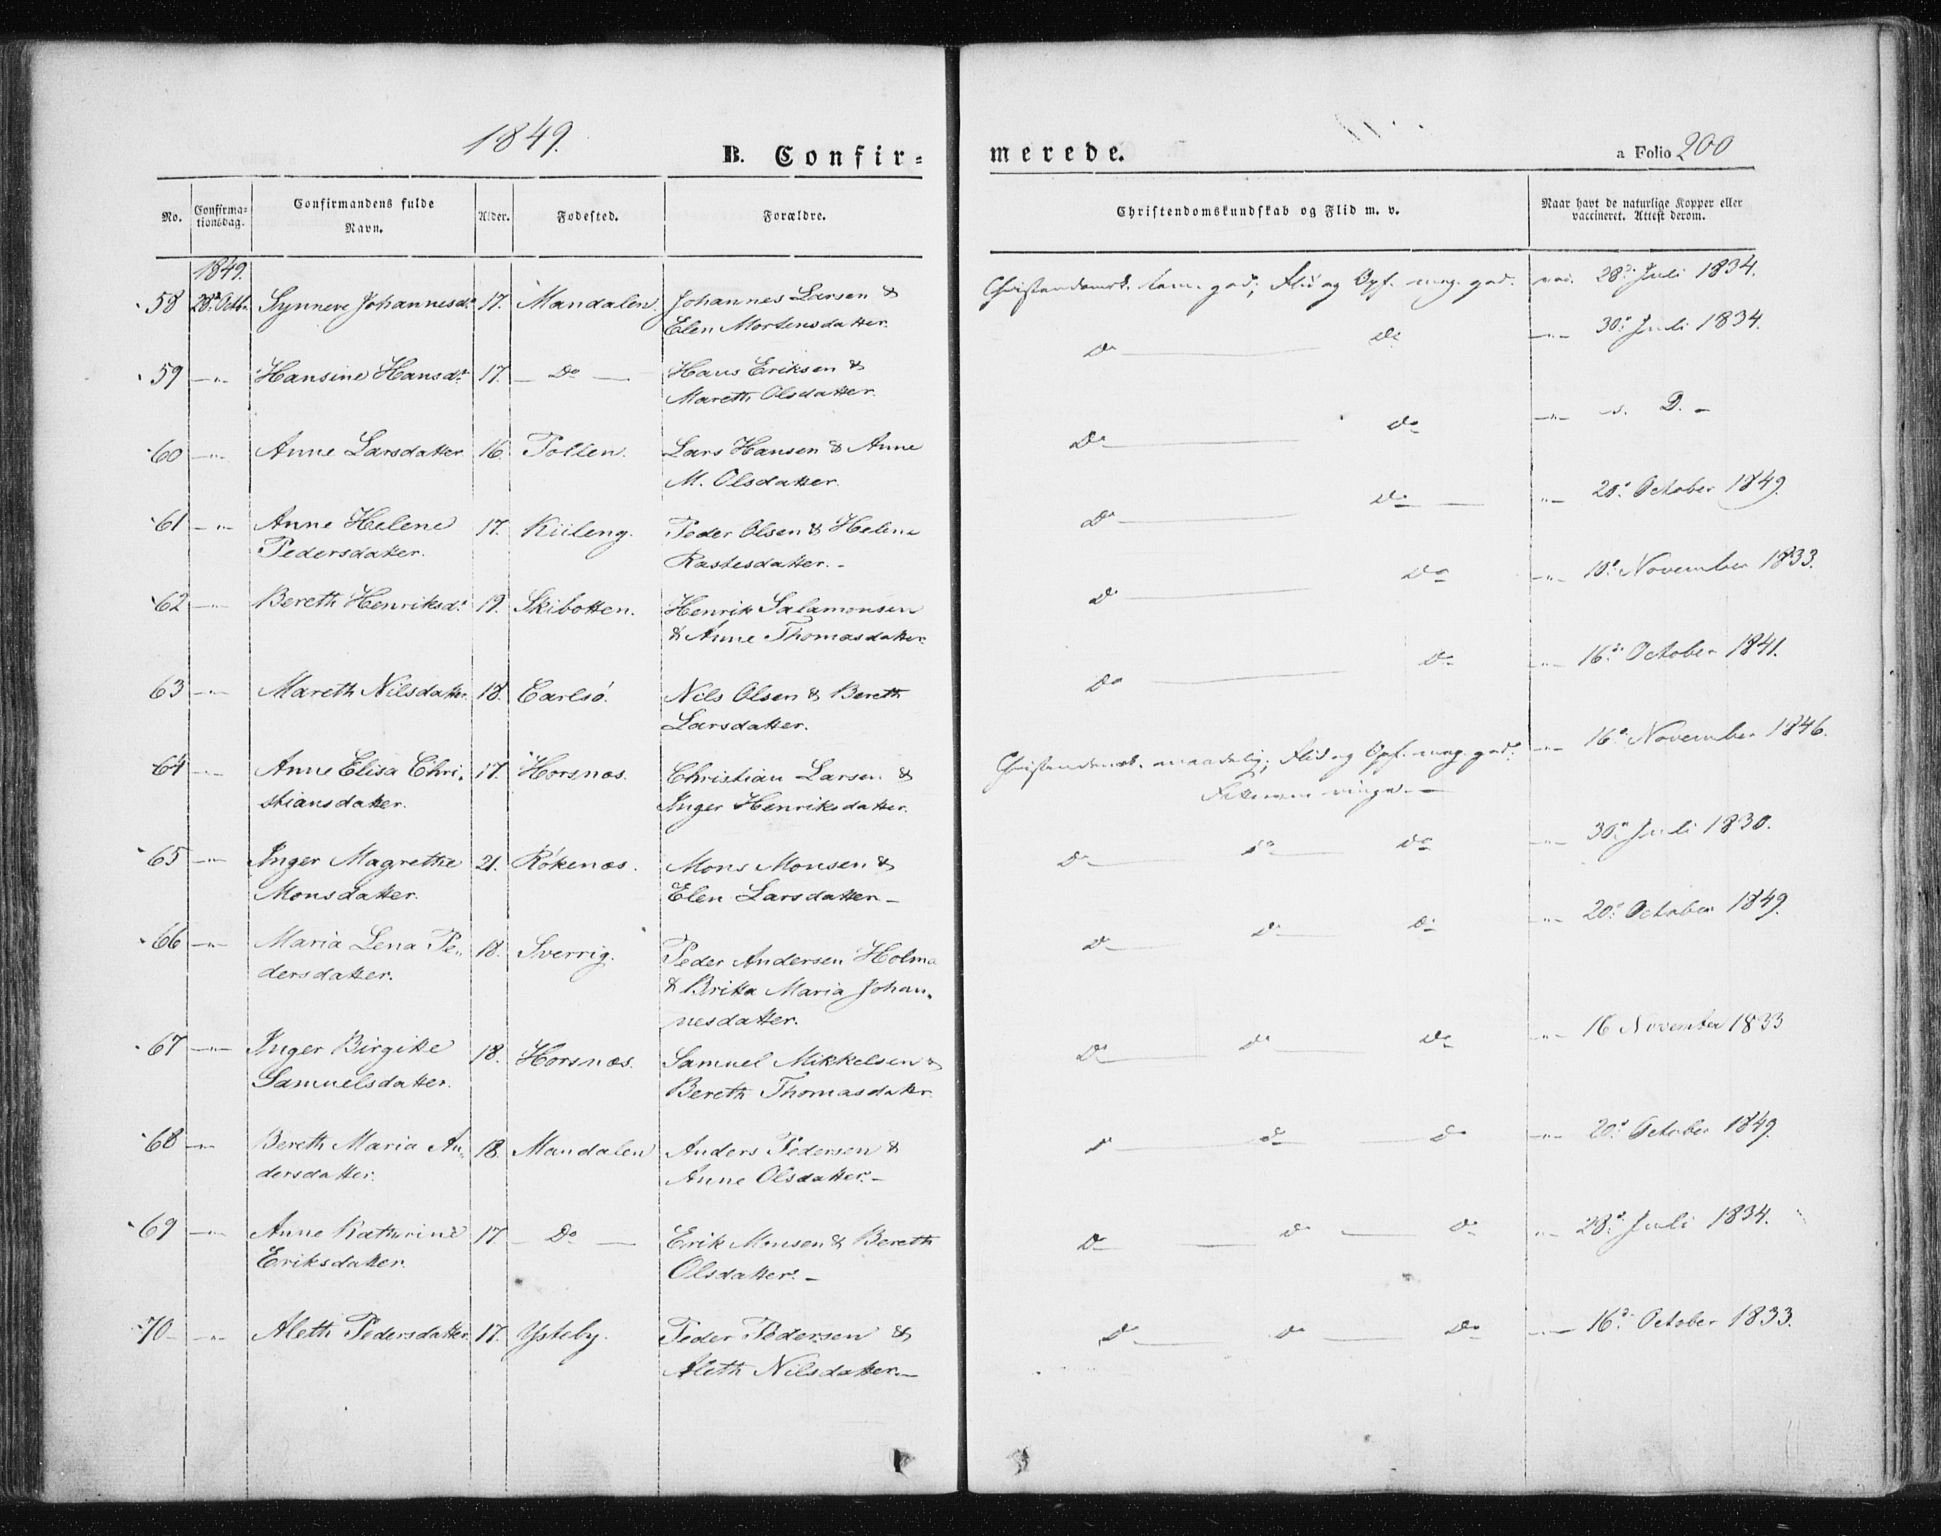 1849.
B. Confir=
merede.
a Folio 200
No. Confirma=tionsdag. Confirmandens fulde Navn. Alder. Fødested. Forældre. Christendomskundskab og Flid m. v. Naar havt de naturlige Kopper eller vaccineret. Attest derom.
1849.
58 28de Octbr. Synneve Johannesdr. 17. Mandalen. Johannes Larsen & Christendomsk. tem. god; Flid og Opf. meg. god. vac. 28de Juli 1834.
Elen Mortensdatter.
59 —"— Hansine Hansdr. 17. — Do — Hans Eriksen & Do — Do —"— 30te Juli 1834.
Mareth Olsdatter.
60 —"— Anne Larsdatter 16. Pollen. Lars Hansen & Anne Do — Do —"— s. D. —
M. Olsdatter.
61 —"— Anne Helene 17. Kiileng. Peder Olsen & Helene Do — Do — —"— 20de October 1849.
Pedersdatter. Rastesdatter. —
62 —"— Bereth Henriksdr. 19. Skibotten. Henrik Salamonsen Do — Do —"— 10de November 1833.
& Anne Thomasdatter.
63 —"— Mareth Nilsdatter. 18. Carlsö. Nils Olsen & Bereth Do — Do —"— 16de October 1841.
Larsdatter.
64 —"— Anne Elisa Chri- 17. Horsnæs. Christian Larsen & Christendomsk. maadelig; Flid og Opf. meg. god. —"— 16de November 1846.
stiansdatter. Inger Henriksdatter.
65 —"— Inger Magrethe 21. Rökenæs. Mons Monsen & Do — Do — Do —"— 30te Juli 1830.
Monsdatter. Elen Larsdatter —
66 —"— Maria Lena Pe- 18. Sverrig. Peder Andersen Holma Do — Do — Do —"— 20de October 1849.
dersdatter. & Britta Maria Johan-
nesdatter.
67 —"— Inger Birgitte 18. Horsnæs. Samuel Mikkelsen & Do — Do — Do —"— 16 November 1833
Samuelsdatter. Bereth Thomasdatter.
68 —"— Bereth Maria An- 18. Mandalen Anders Pedersen & Do — Do — Do —"— 20de October 1849.
dersdatter. Anne Olsdatter. —
69 —"— Anne Kathrine 17 — Do — Erik Monsen & Bereth Do — Do — Do —"— 28de Juli 1834.
Eriksdatter. Olsdatter. —
70 —"— Aleth Pedersdatter. 17. Ysteby. Peder Pedersen & Do — Do — Do —"— 16de October 1833.
Aleth Nilsdatter. —